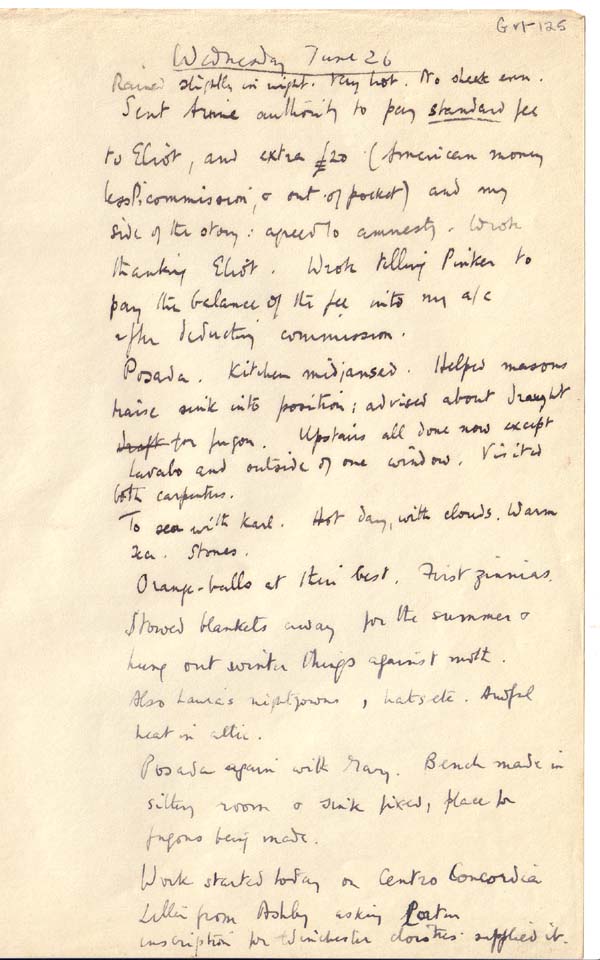 GVI-125
Wednesday June 26
Rained slightly in night. Very hot. No sheet even.
Sent Arnie authority to pay standard fee
to Eliot, and extra £20 (American money
less P's commission, & out of pocket) and my
side of the story: agreed to amnesty. Wrote
thanking Eliot. Wrote telling Pinker to
pay the balance of the fee into my a/c
after deducting commission.
Posada. Kitchen midjansed. Helped masons
raise sink into position; advised about draught
draft for fugon. Upstairs all done now except
lavabo and outside of one window. Visited
both carpenters.
To sea with Karl. Hot day, with clouds. Warm
sea. Stones.
Orange-balls at their best. First zinnias.
Stowed blankets away for the summer &
hung out winter things against moth.
Also Laura's nightgowns, hats etc. Awful
heat in attic.
Posada again with Mary. Bench made in
sitting room & sink fixed, place for
fugons being made.
Work started today on Centro Concordia
Letter from Ashby asking Latin
inscription for Winchester cloisters: supplied it.